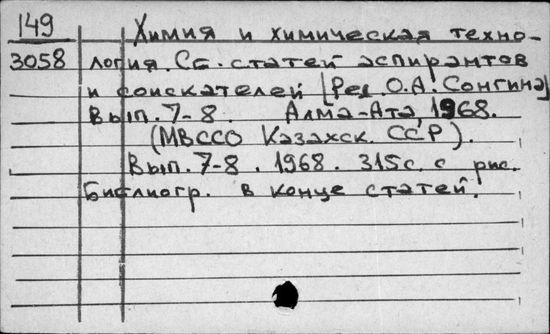 149 Химия и химическая техно-
3058 логия. Сб. статей аспирантов
и соискателей [Ред. О.А. Сонгина]
Вып. 7-8. Алма-Ата, 1968.
(МВССО Казахск. ССР).
Вып. 7-8. 1968. 315с. с рис.
Библиогр. в конце статей.